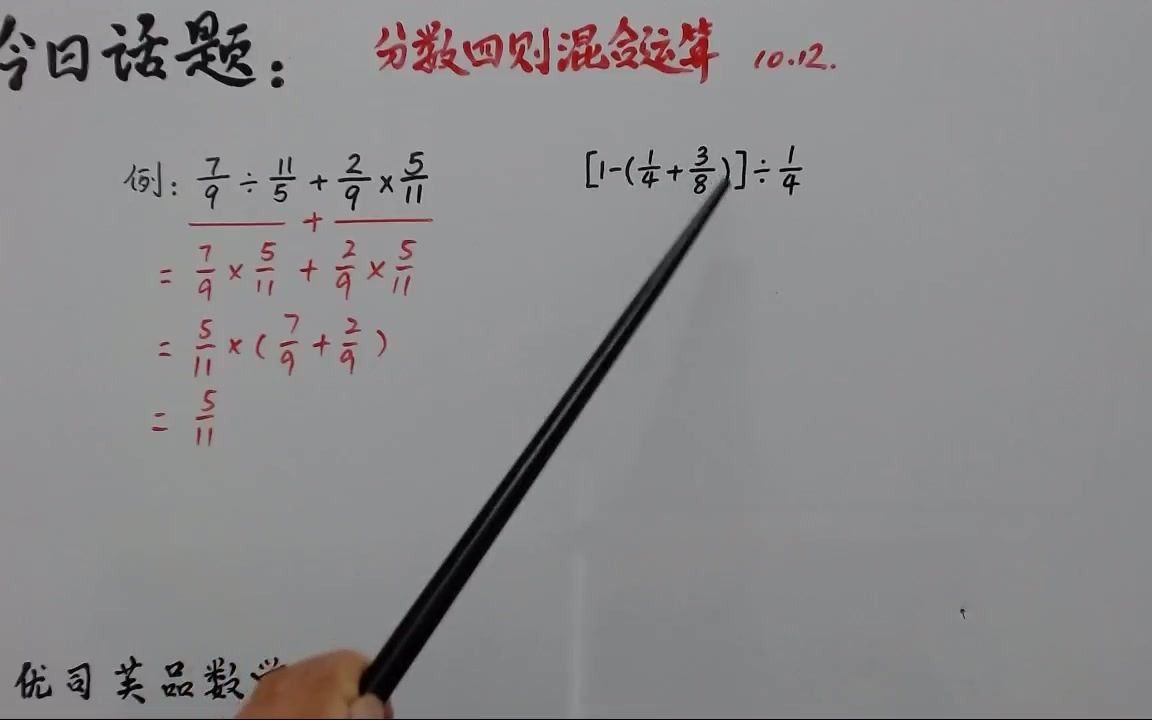 今日话题：
分数四则混合运算 10.12.
例: 7/9 ÷ 11/5 + 2/9 × 5/11
+
= 7/9 × 5/11 + 2/9 × 5/11
= 5/11 × ( 7/9 + 2/9 )
= 5/11
[1-(1/4 + 3/8)] ÷ 1/4
优司芙品数学